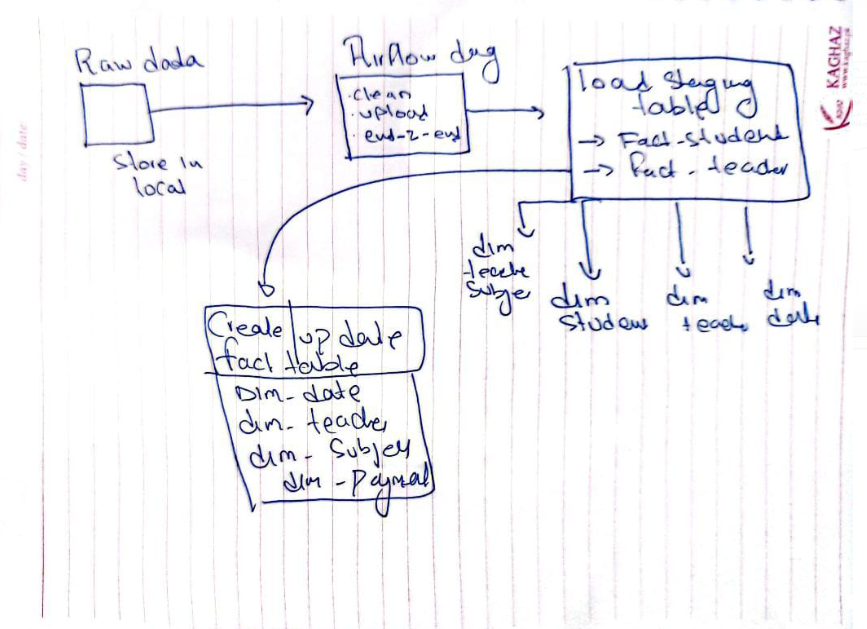 Raw dada
Store in
local
Airflow dag
· clean
· upload
· end-2-end
load Staging
table
→ Fact-student
→ Fact - teacher
dim
teache
Subje
dim
student
dim
teache
dim
date
Create | update
fact table
Dim- date
dim- teacher
dim - Subject
dim - Payment
day / date
KAGHAZ
www.kaghaz.pk